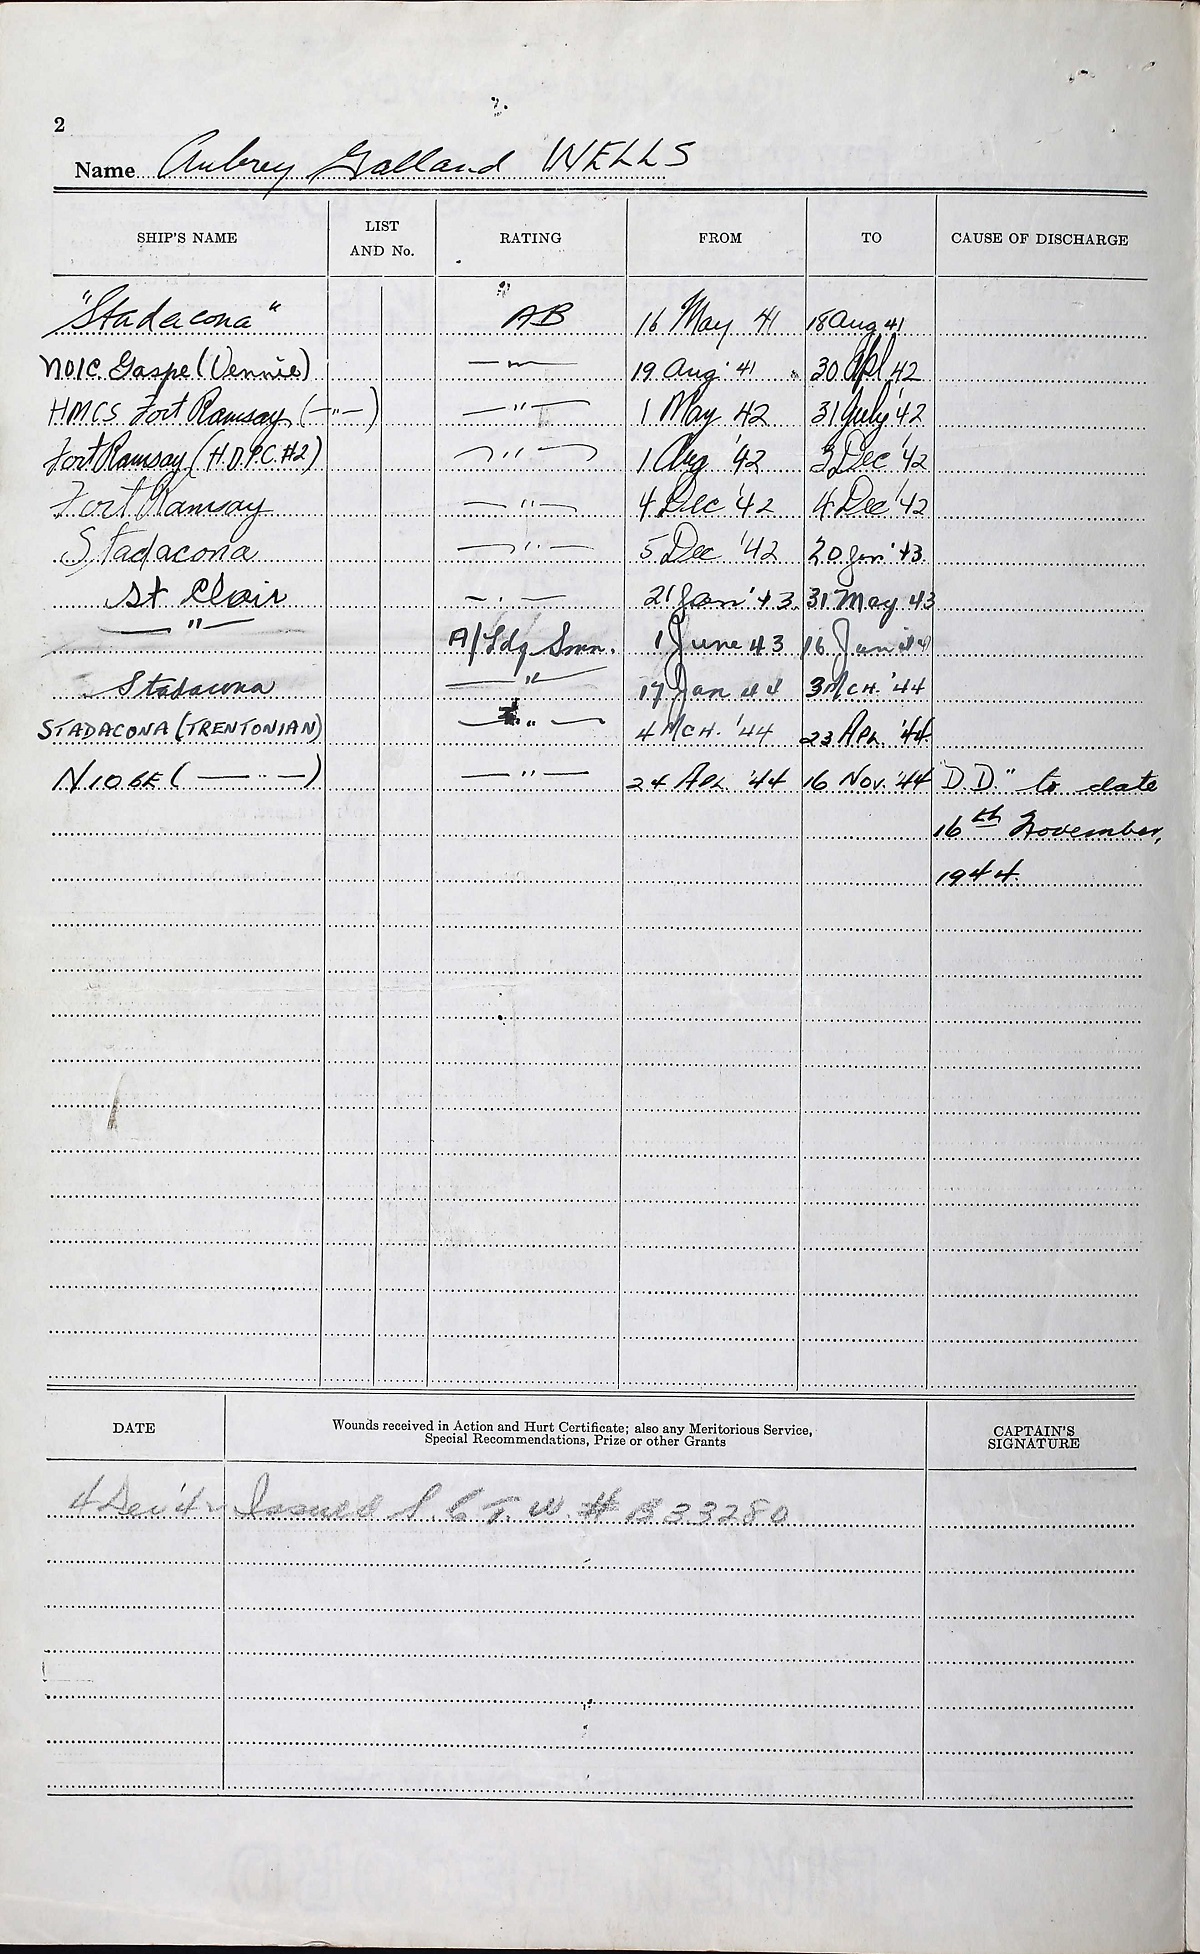 2
Name Aubrey Galland WELLS
SHIP'S NAME LIST AND No. RATING FROM TO CAUSE OF DISCHARGE
"Stadacona" AB 16 May 41 18 Aug 41
NOIC Gaspe (Vennie) —"— 19 Aug '41 30 Apl 42
HMCS Fort Ramsay (—"—) —"— 1 May '42 31 July '42
Fort Ramsay (H.D.P.C. #2) —"— 1 Aug '42 3 Dec '42
Fort Ramsay —"— 4 Dec '42 4 Dec '42
Stadacona —"— 5 Dec '42 20 Jan '43
St Clair —"— 21 Jan '43 31 May 43
—"— A/Ldg Smn. 1 June 43 16 Jan 44
Stadacona —"— 17 Jan 44 3 MCH. '44
STADACONA (TRENTONIAN) —"— 4 MCH. '44 23 APL '44
NIOBE (—"—) —"— 24 APL '44 16 Nov. '44 "D.D." to date
16th November,
1944.
DATE Wounds received in Action and Hurt Certificate; also any Meritorious Service, CAPTAIN'S
Special Recommendations, Prize or other Grants SIGNATURE
4 Dec '42 Issued S.C.T.W. # B33280